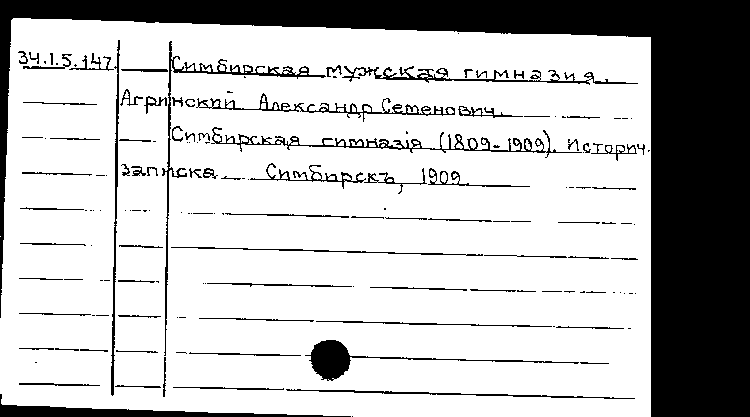 34.1.5.147. Симбирская мужская гимназия.
Агринский Александр Семенович.
Симбирская гимназія (1809-1909). Историч.
записка. Симбирскъ, 1909.